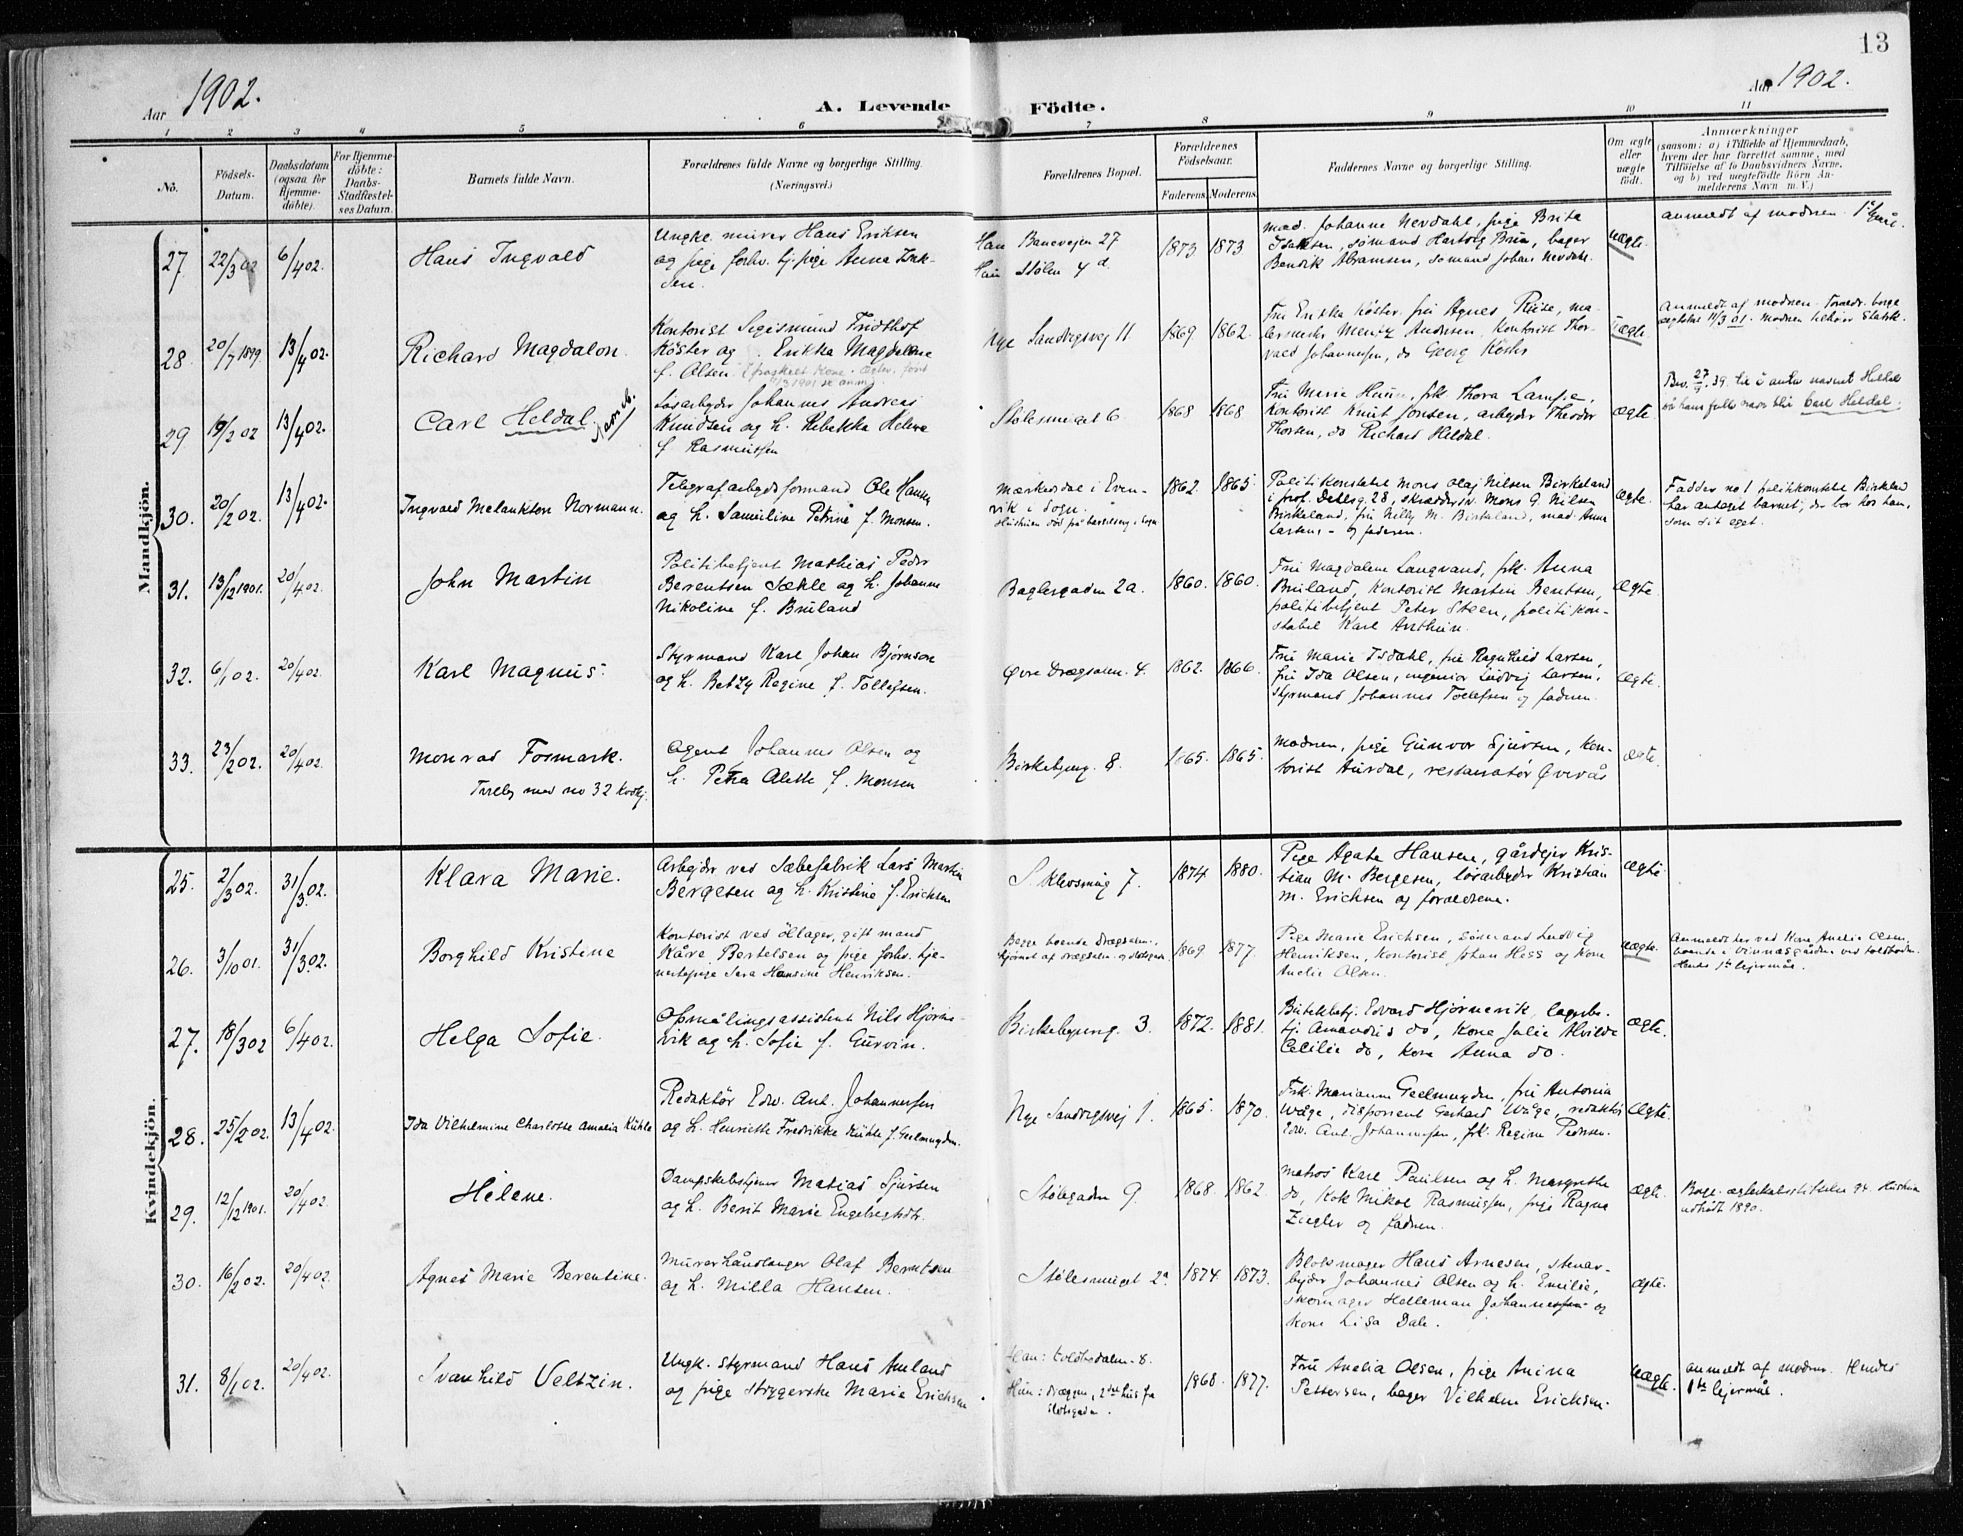 13
Aar 1902.
A. Levende Födte.
Aar 1902.
1 2 3 4 5 6 7 8 9 10 11
No.
Födsels-Datum.
Daabsdatum (ogsaa for Hjemme-döbte).
For Hjemme-döbte: Daabs-Stadfæstel-ses Datum.
Barnets fulde Navn.
Forældrenes fulde Navne og borgerlige Stilling.
(Næringsvei.)
Forældrenes Bopæl.
Forældrenes Födselsaar.
Faderens Moderens
Faddernes Navne og borgerlige Stilling.
Om ægte eller uægte födt.
Anmærkninger
(saasom: a) i Tilfælde af Hjemmedaab,
hvem der har forrettet samme, med
Tilföielse af to Daabsvidners Navne,
og b) ved uægtefödte Börn An-
melderens Navn m. V.)
Mandkjön.
27. 22/3 02 6/4 02. Hans Ingvald
Ungk. murer Hans Eriksen
og pige forhv. tj. pige Anna Isak-
sen.
Han Banevejen 27
Hun Stølen 4 d.
1873 1873
mad. Johanne Nevdahl, pige Brita
Isaksen, sømand Hartvig Brun, bager
Bendik Abramsen, sømand Johan Nevdahl.
uægte.
anmeldt af modren.
28. 20/7 1899. 13/4 02. Richard Magdalon.
Kontorist Sigismund Fridthof
Köster og Erikka Magdalene
f. Olsen
11/3 1901 se anm.
Nye Sandvigsvej 11.
1869. 1862.
Fru Erikka Köster, fru Agnes Riise, ma-
lermester Mentz Andersen, Kontorist Thor-
vald Johannesen, do Georg Köster
uægte.
Anmeldt af modren. Forældr. borge
ægteviet 11/3 01. Modren tilhører Statsk.
29. 19/2 02 13/4 02. Carl Heldal
Løsarbejder Johannes Andreas
Knudsen og h. Rebekka Helene
f. Rasmussen
Stølesmuget 6
1868 1868
Fru Marie Hauge, frk Thora Lampe,
Kontorist Knut Jonsen, arbejder Theodor
Thorsen, do Richard Heldal.
ægte.
Bev. 27/9. 39. til å anta navnet Heldal
så hans fulle navn blir Carl Heldal.
30. 20/2 02. 13/4 02. Ingvald Melankton Normann.
Telegrafarbejdsformand Ole Hansen
og h. Samiline Petrine f. Monsen.
Mærkesdal i Even-
vik i Sogn.
1862. 1865.
Politikonstabel Mons Olaj Nilsen Birkeland
i prof. Dahlsg. 28, skrædder Mons G. Nilsen
Birkeland, fru Nilly M. Birkeland, mad. Anna
Larsen, og faderen.
ægte.
Fadder no 1 politikonstabel Birkeland
har antaget barnet, der bor hos ham,
som sit eget.
31. 13/12 1901. 20/4 02. John Martin
Politibetjent Mathias Peder
Berentsen Sækle og h. Johanne
Nikoline f. Bruland
Baglergaden 2a.
1860. 1860.
Fru Magdalene Langvand, frk. Anna
Bruland, Kontorist Martin Bentsen,
politibetjent Peter Steen, politikon-
stabel Karl Arnthun.
ægte.
32. 6/1 02. 20/4 02. Karl Magnus.
Styrmand Karl Johan Bjørnson
og h. Betzy Regine f. Tollefsen.
Øvre Dregsalen. 4.
1862. 1866.
Fru Marie Isdahl, fru Ragnhild Larsen,
fru Ida Olsen, ingeniør Ludvig Larsen,
styrmand Johannes Tollefsen og fadren.
ægte.
33. 23/2 02. 20/4 02. Monrad Fosmark.
Tvilling med no 32 Kvkj.
Agent Johannes Olsen og
h. Petra Alette f. Monsen
Birkebejnerg. 8.
1865. 1865.
Modren, pige Gunvor Sjursen, Kon-
torist Aurdal, restauratør Øverås
ægte.
Kvindekjön.
25. 2/3 02. 31/3 02. Klara Marie.
Arbejder ved Sæbefabrik Lars Martin
Bergesen og h. Kristine f. Erichsen
S. Klevsmug 7.
1874 1880.
Pige Agate Hansen, gårdejer Kris-
tian M. Bergesen, løsarbejder Kristian
M. Erichsen og forældrene.
ægte
26. 3/10 01. 31/3 02. Borghild Kristine
Kontorist ved öllager, gift mand
Kåre Bertelsen og pige forhv. tje-
nestepige Sera Hansine Henriksen.
Begge boende Dregsalm.
hjørnet af Dregsalm. og Slotsgade
1869 1877.
Pige Marie Erichsen, sømand Ludvig
Henriksen, Kontorist Johan Hess og Kone
Amelie Olsen.
uægte.
Anmeldt her ved Kone Amelie Olsen
boende i Vinnæsgården ved Toldboden.
Hendes 1ste lejermål.
27. 18/3 02 6/4 02. Helga Sofie.
Opmålingsassistent Nils Hjørne-
vik og h. Sofie f. Gurvin.
Birkebejnerg. 3.
1872. 1881.
Butikbetj. Edvard Hjørnevik, lagerbe-
tj. Amandus do, Kone Julie Alvilde
Cecilie do, Kone Anna do.
ægte.
28. 25/2 02. 13/4 02. Ida Vilhelmine Charlotte Amalia Kühle
Redaktør Edv. Ant. Johannesen
og h. Henriette Fredrikke Kühle f. Geelmuyden.
Nye Sandvigsvej 1.
1865. 1870.
Frk. Marianne Geelmuyden, fru Antonia
Wåge, disponent Gerhard Wåge, redaktør
Edv. Ant. Johannesen, frk. Regine Pedersen.
ægte.
29. 12/12 1901. 20/4 02. Helene.
Dampskibstjener Matias Sjursen
og h. Berit Marie Engebretsdtr.
Stølegaden 9.
1868. 1862.
Matros Karl Paulsen og h. Margrethe
do, Kok Nikol Rasmussen, pige Ragna
Ziegler og fadren.
ægte.
Borg. ægteskabsstiftelse 94. Hustru
udtrådt 1890.
30. 16/2 02. 20/4 02. Agnes Marie Berentine.
Murerhåndlanger Olaf Berntsen
og h. Milla Hansen.
Stølesmuget 2a
1874. 1873.
Blokmager Hans Arnesen, stenar-
bejder Johannes Olsen og h. Emilie,
skomager Helleman Johannesen og
Kone Lisa Dale.
ægte.
31. 8/1 02. 20/4 02. Svanhild Veltzin.
Ungk. styrmand Hans Amland
og pige strygerske Marie Erichsen
Han: Koldtsdalm. 8.
Hun: Dreggen, 2det hus fra
Slotsgaden.
1868. 1877.
Fru Amelia Olsen, pige Anina
Pettersen, bager Vilhelm Erichsen.
uægte.
anmeldt af modren. Hendes
1ste lejermål.